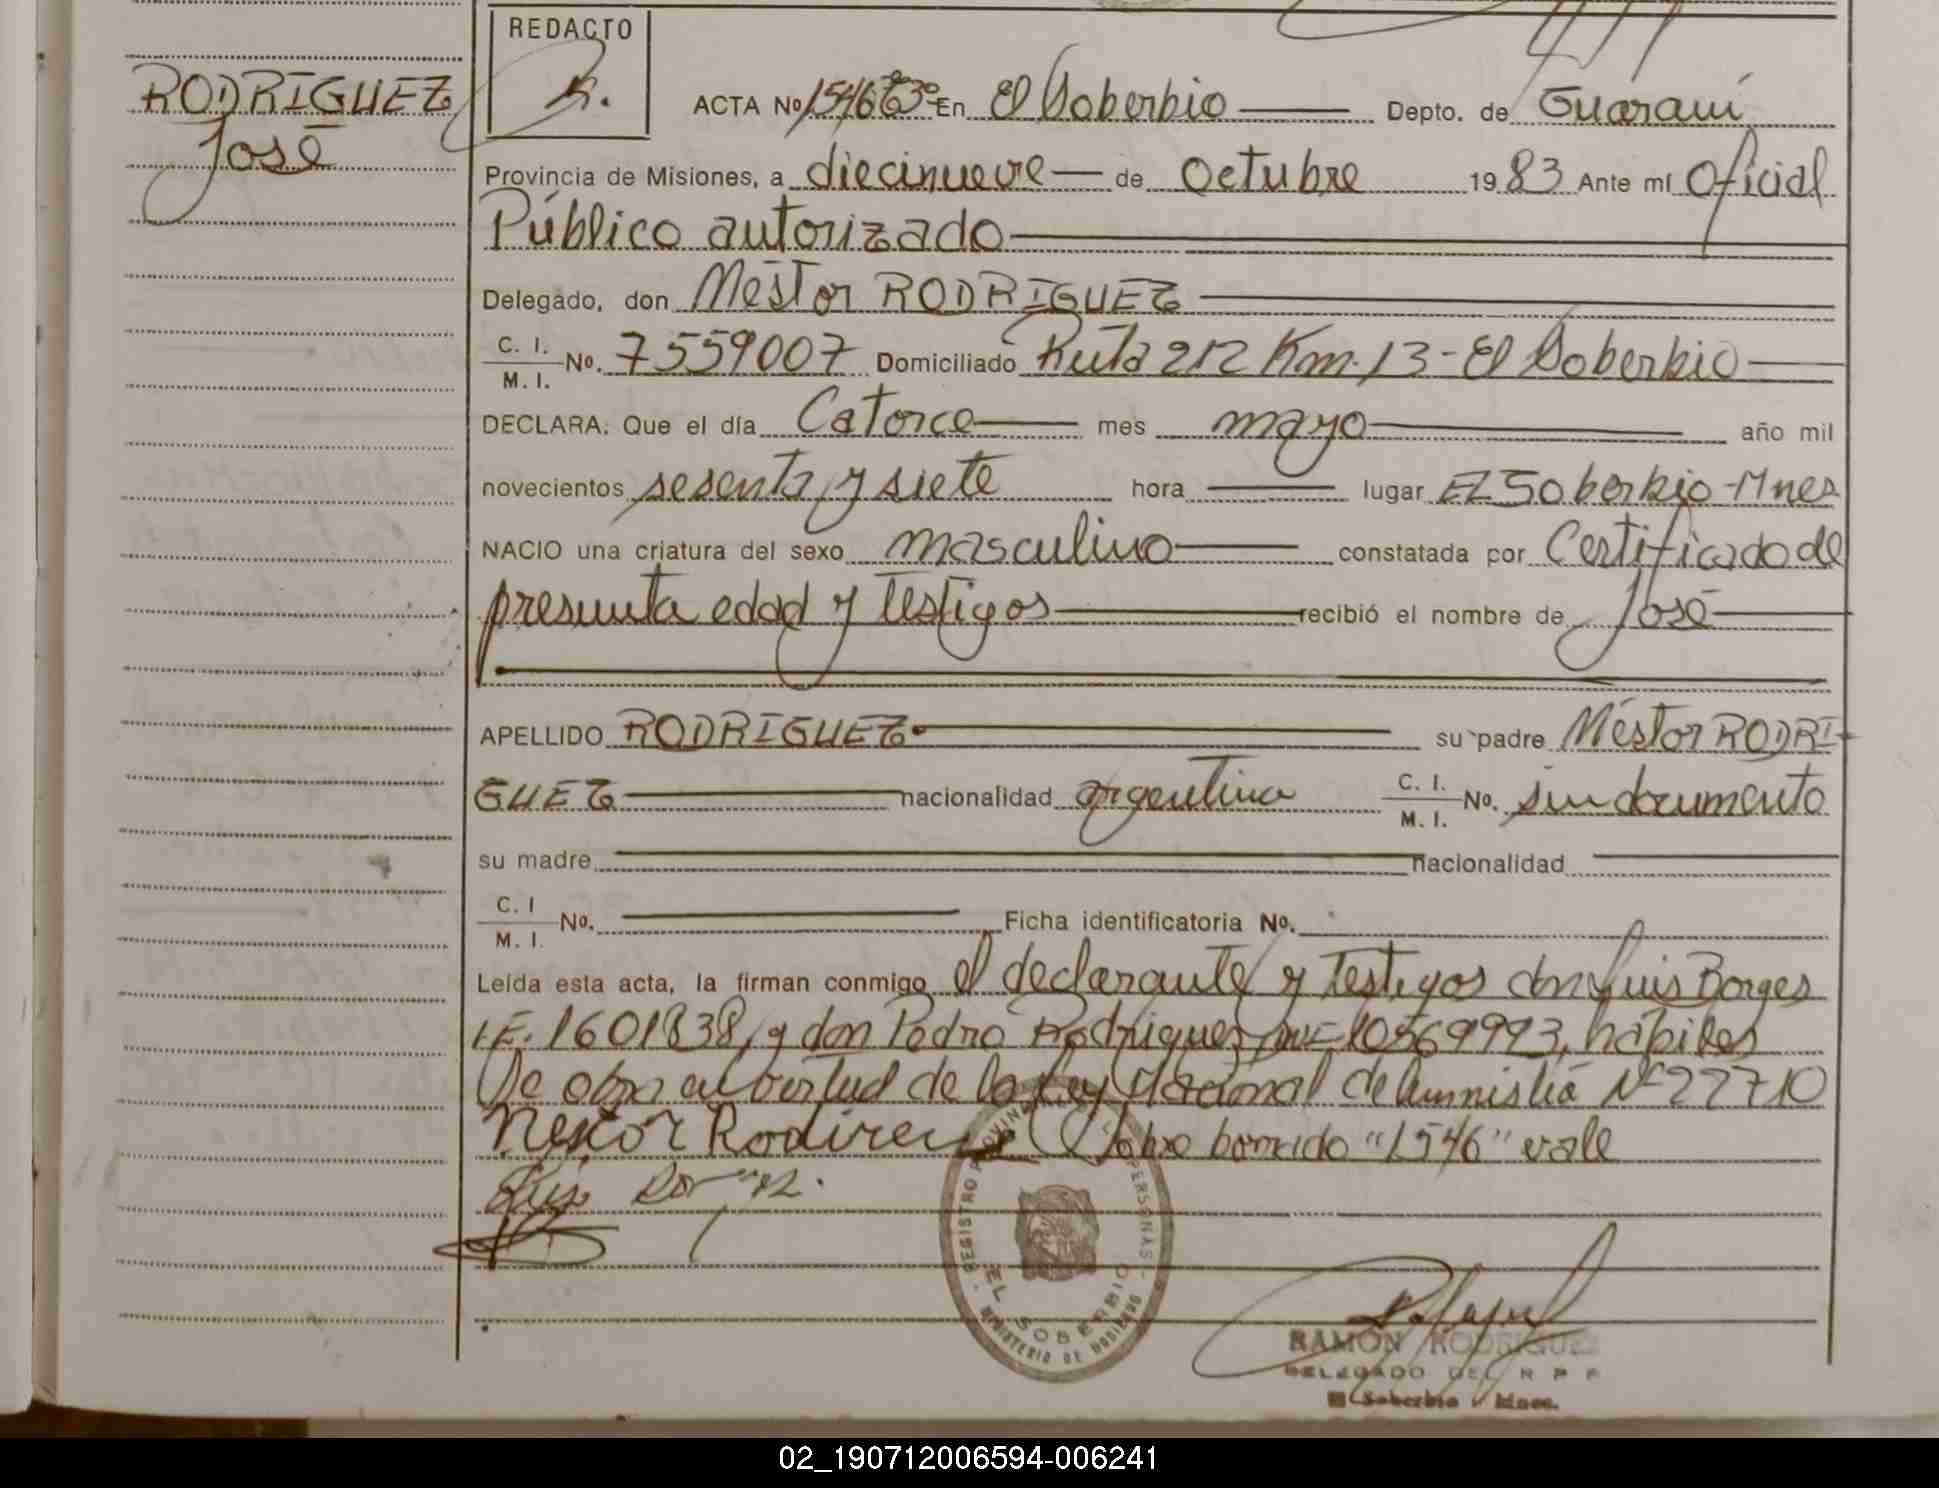 RODRIGUEZ
José
REDACTO
ACTA Nº 1546 Tº3º En El Soberbio Depto. de Guaraní
Provincia de Misiones, a diecinueve de Octubre 1983 Ante mí Oficial
Público autorizado
Delegado, don Néstor RODRIGUEZ
C. I.
M. I. No. 7559007 Domiciliado Ruta 212 Km. 13 - El Soberbio
DECLARA: Que el día Catorce mes mayo año mil
novecientos sesenta y siete hora lugar EL Soberbio - Mnes
NACIO una criatura del sexo masculino constatada por Certificado de
presunta edad y testigos recibió el nombre de José
APELLIDO RODRIGUEZ su padre Néstor RODRI-
GUEZ nacionalidad argentina C. I.
M. I. No. sin documento
su madre nacionalidad
C. I
M. I. No. Ficha identificatoria No.
Leída esta acta, la firman conmigo el declarante y testigos don Luis Borges
I.E. 1601838, y don Pedro Rodriguez DNI 10569993, hábiles
De obra en virtud de la Ley Nacional de Amnistía Nº 22710
Nestor Sobre borrado "1546" vale
Luis
REGISTRO PROVINCIAL PERSONAS
EL SOBERBIO
MINISTERIO DE GOBIERNO
RAMÓN RODRIGUEZ
DELEGADO DEL R P P
El Soberbio Mnes.
02_190712006594-006241